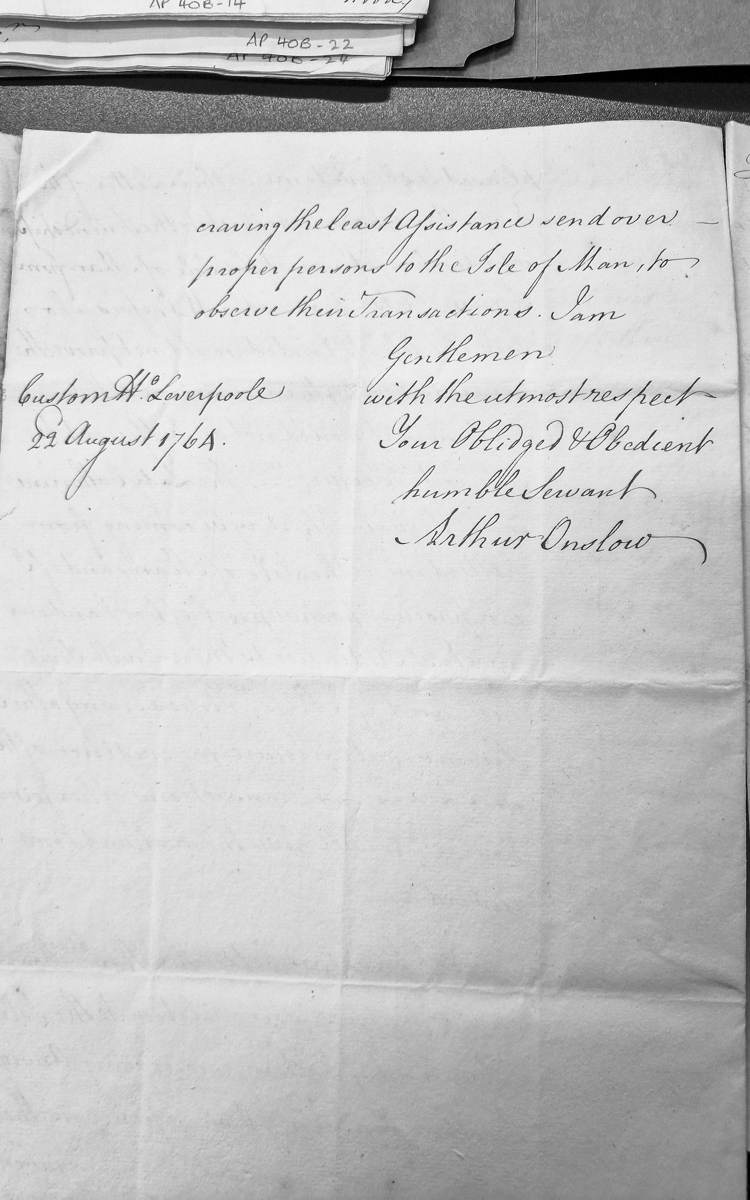 AP 40B-14
AP 40B-22
AP 40B-24
craving the least Assistance send over —
proper persons to the Isle of Man, to
observe their Transactions. I am
Gentlemen
with the utmost respect
Your Oblidged & Obedient
humble Servant
Arthur Onslow
Custom Ho. Leverpoole
22 August 1764.